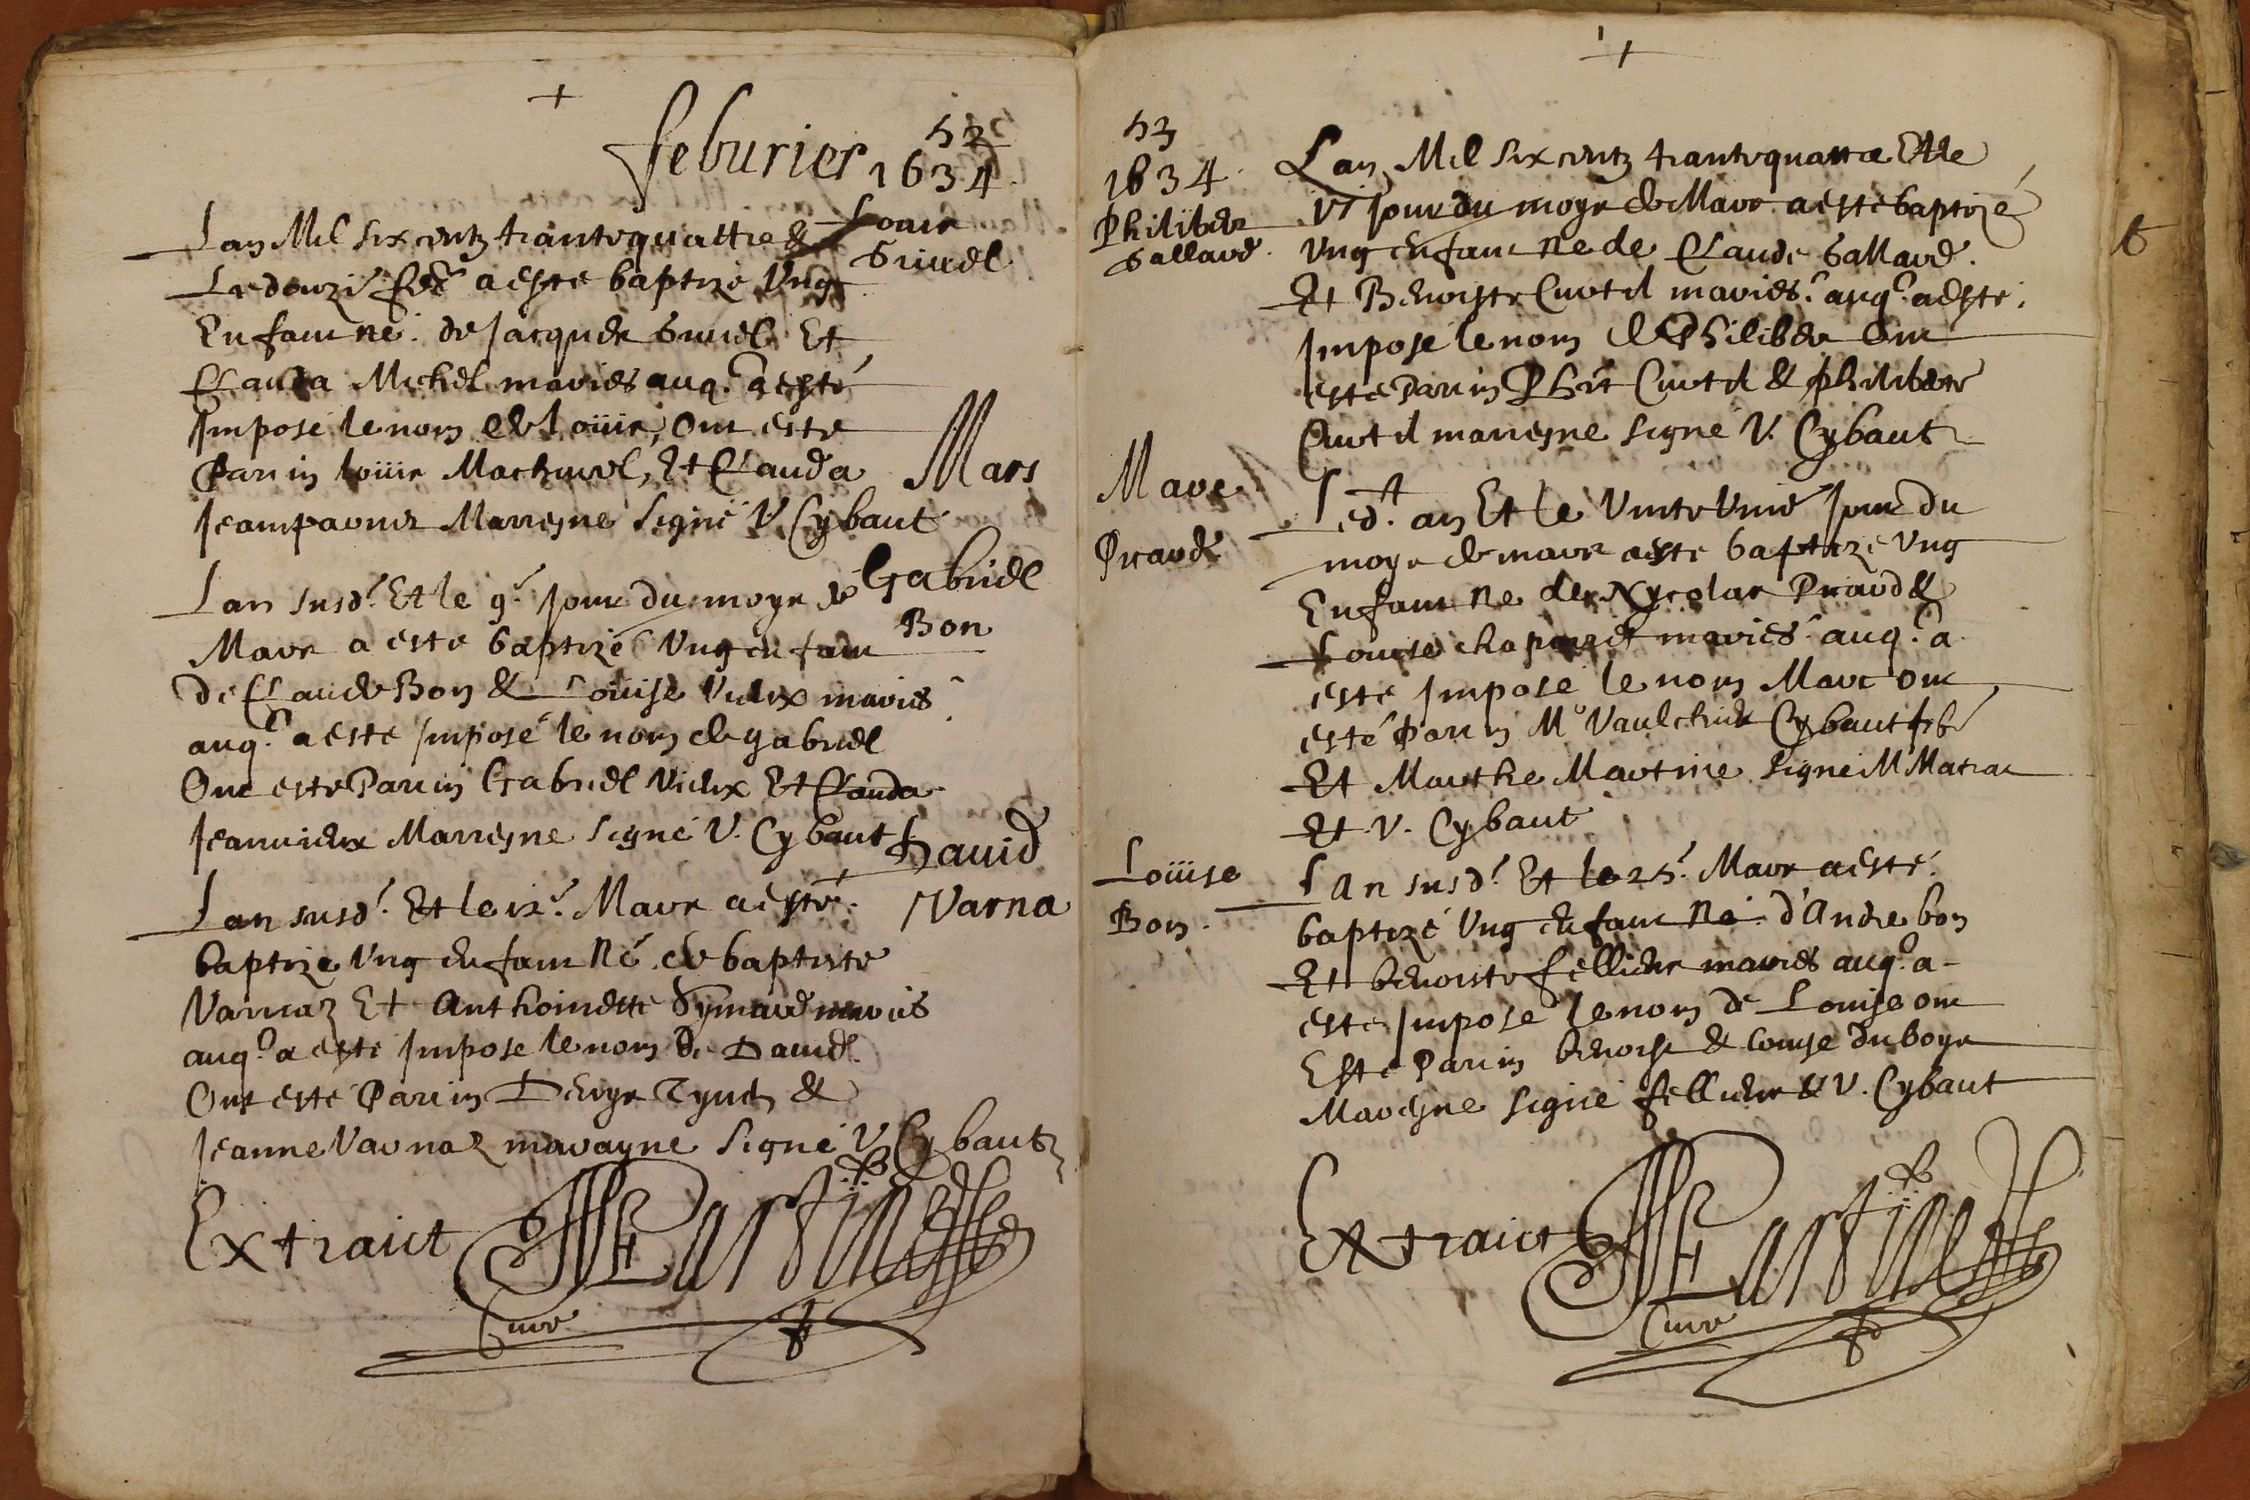 52
feburier 1634
Louis
Griuel
Lan Mil six centz trantequattre &
Le douzi.e feb.r a este baptizé Vng
Enfant né. de Jacques Griuel Et
Clauda Michel mariés auq.l a esté
Imposé le nom de Loüis, Ont este
Parrin loüis Machurel, Et Clauda
Marresne signé V. Cybaut
Mars
Gabriel
Bon
Lan susd.t Et le 9.e Jour du moys de
Mars a esté baptizé Vng enfant
de Claude Bon & Louise Vieux mariés
auq.l a este Imposé le nom de gabriel
Ont este Parrin Gabriel Vieux Et Clauda
Jeanvieux Marresne signé V. Cybaut
Dauid
Varna
Lan susd.t Et le 12.e Mars a esté
baptize Vng enfant Né de baptiste
Varnaz Et Anthoinette mariés
auq.l a esté Impose le nom de Dauid
Ont esté Parrin Denys & 
Jeanne Varnaz marayne signé V. Cybaut
Extraict
Curé
53
1634
Philiber
Gallard
Lan Mil six centz trantequattre Et le
Jour du moys de Mars a esté baptizé
Vng enfant Ne de Claude Gallard.
Et Benoiste Curtil mariés auq.l a esté
Impose le nom de Philiber Ont
este Parrin Curtil & philiberte
Curtil marresne signé V. Cybaut
Marc
Praud
Led.t an Et le Vinte Vnié Jour du
moys de mars a este baptize Vng
Enfant Ne de Nycolas Praud &
Louise mariés auq.l a
esté Impose le nom Marc ont
esté Parrin M.e Vaulchier Cybaut
Et Marthe Martine signé M
Et V. Cybaut
Loüise
Bon.
LAn susd.t Et le 25.e Mars a esté
baptizé Vng enfant Né d'Andre bon
Et benoiste fellieur mariés auq.l a
este Impose le nom de Louise ont
Este Parrin benoist & Louise duboys
Maresne signé fellieur & V. Cybaut
Extraict
Curé